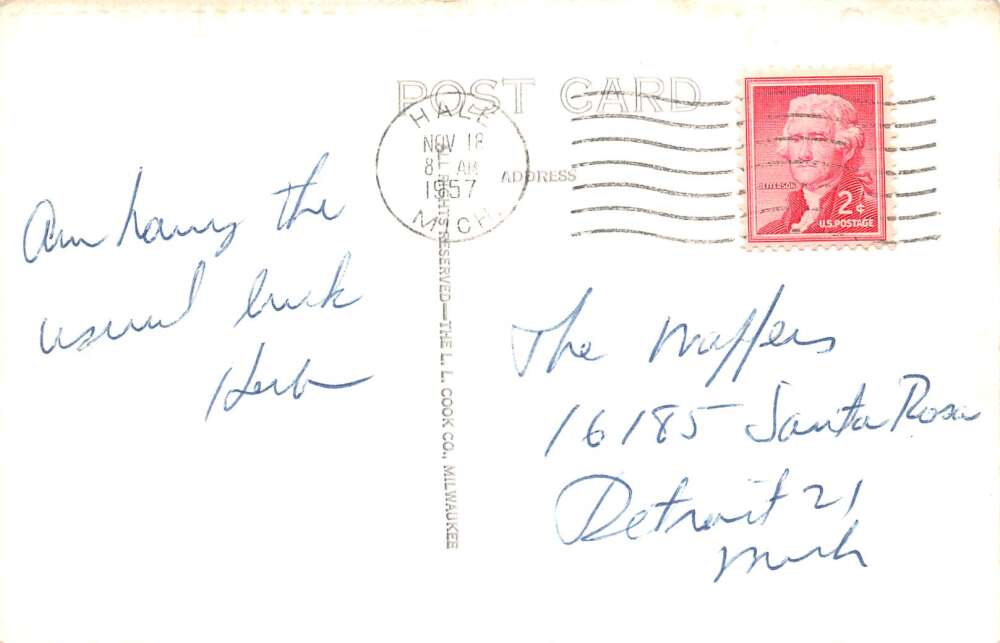 POST CARD
HALE
NOV 18
8 AM
1957
MICH.
ADDRESS
JEFFERSON
2¢
U.S. POSTAGE
ALL RIGHTS RESERVED—THE L. L. COOK CO., MILWAUKEE
Am having the
usual luck
Herb
The
16185 Santa Rosa
Detroit 21
Mich